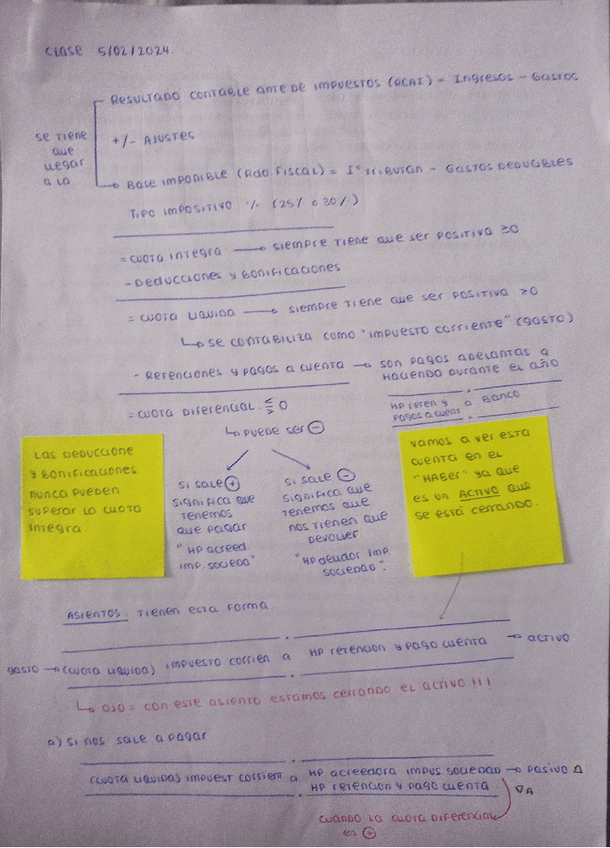 Clase 5/02/2024
RESULTADO CONTABLE ANTE DE IMPUESTOS (RCAI) = Ingresos - Gastos
SE TIENE
QUE
LLEGAR
A LA
+/- AJUSTES
BASE IMPONIBLE (Rdo FISCAL) = Iº TRIBUTAN - GASTOS DEDUCIBLES
TIPO IMPOSITIVO % (25% o 30%)
= CUOTA INTEGRA → SIEMPRE TIENE QUE SER POSITIVA ≥0
- DEDUCCIONES Y BONIFICACIONES
= CUOTA LIQUIDA → SIEMPRE TIENE QUE SER POSITIVA ≥0
↳ SE CONTABILIZA COMO "IMPUESTO CORRIENTE" (GASTO)
- RETENCIONES Y PAGOS A CUENTA → SON PAGOS ADELANTAS A
HACIENDA DURANTE EL AÑO
HP reten y a BANCO
PAGOS A CUENT
= CUOTA DIFERENCIAL ≤ ≥ 0
↳ PUEDE SER (-)
LAS DEDUCCIONE
Y BONIFICACIONES
NUNCA PUEDEN
SUPERAR LA CUOTA
INTEGRA
SI SALE (+)
SIGNIFICA QUE
TENEMOS
QUE PAGAR
"HP ACREED.
IMP. SOCIEDA"
SI SALE (-)
SIGNIFICA QUE
TENEMOS QUE
NOS TIENEN QUE
DEVOLVER
"HP DEUDOR IMP.
SOCIEDAD".
VAMOS A VER ESTA
CUENTA EN EL
"HABER" YA QUE
ES UN ACTIVO QUE
SE ESTÁ CERRANDO.
ASIENTOS: TIENEN ESTA FORMA.
GASTO → (CUOTA LIQUIDA) IMPUESTO CORRIEN a HP RETENCION Y PAGO CUENTA → ACTIVO
↳ OJO = CON ESTE ASIENTO ESTAMOS CERRANDO EL ACTIVO !!!
a) SI NOS SALE A PAGAR
(CUOTA LIQUIDA) IMPUEST CORRIENT a HP ACREEDORA IMPUS SOCIEDAD → PASIVO Δ
HP RETENCION Y PAGO CUENTA ∇A
CUANDO LA CUOTA DIFERENCIAL
ES (+)